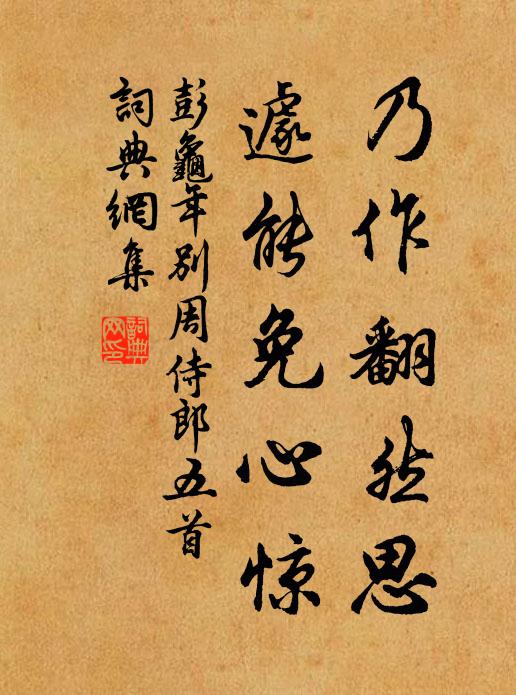 乃作翻然思
遽能免心惊
彭龜年别周侍郎五首
詞典網集
詞典网印